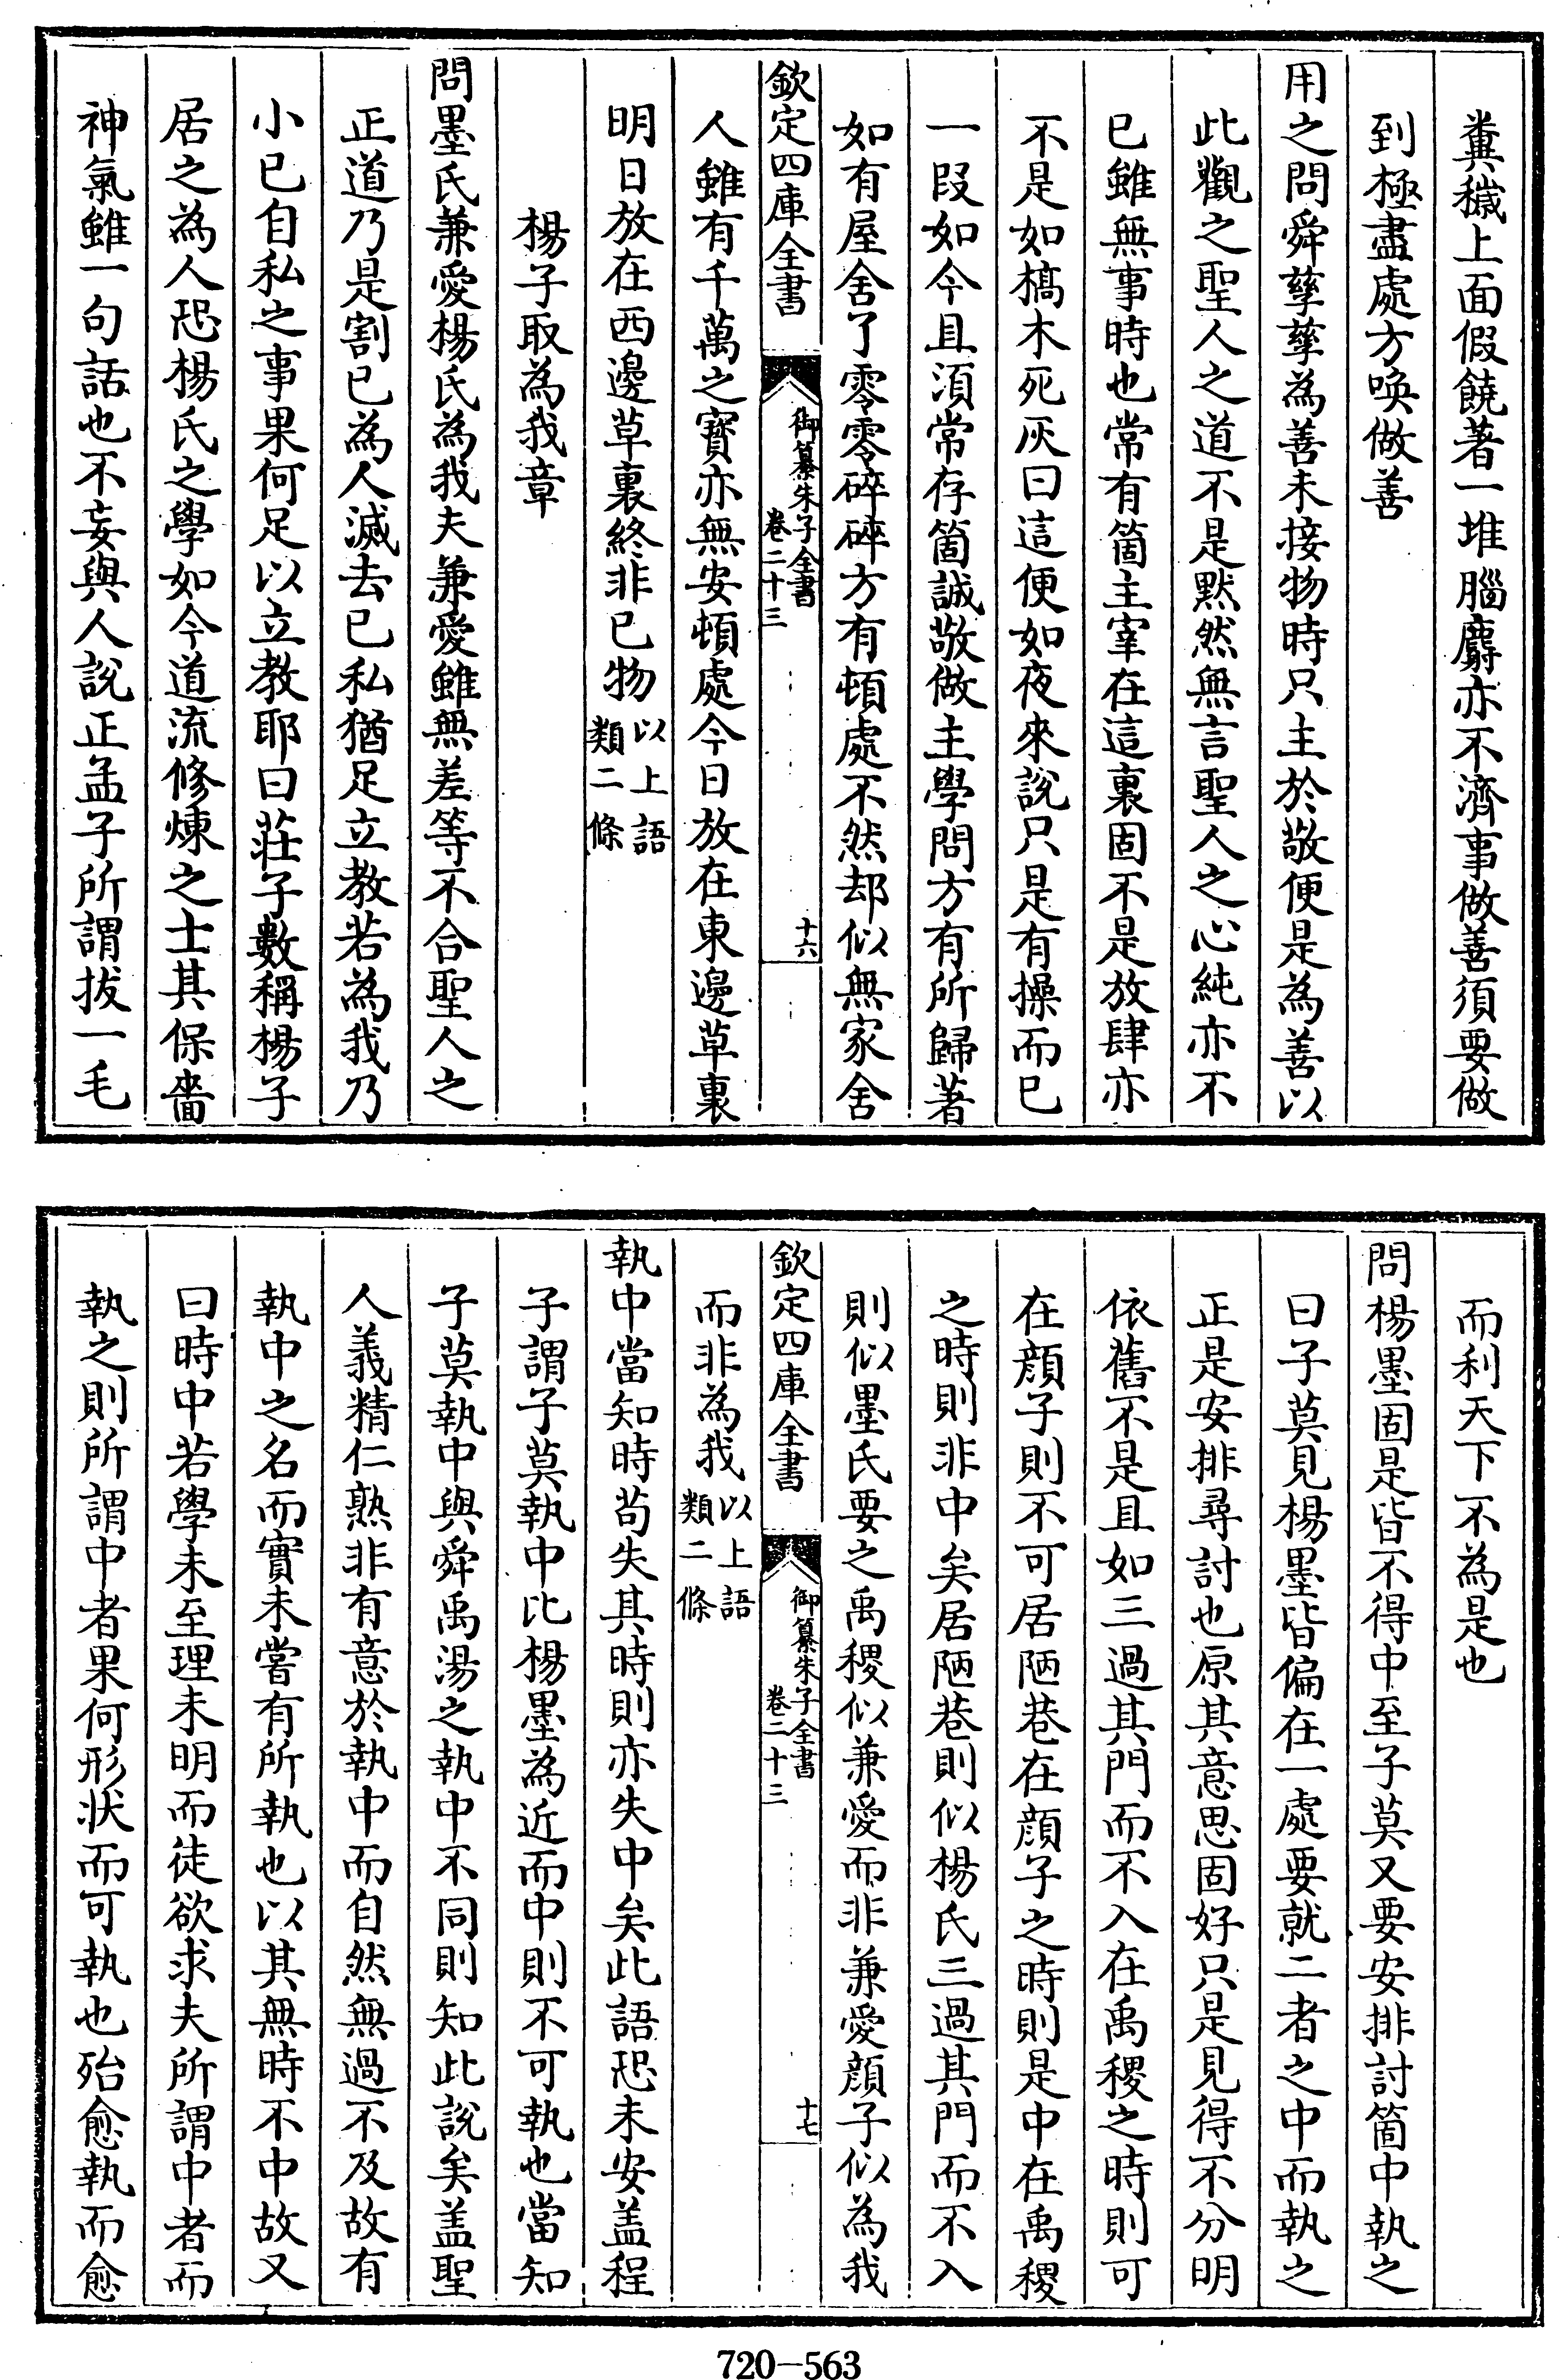 糞穢上面假饒著一堆腦麝亦不濟事做善須要做
到極盡處方喚做善
用之問舜孳孳為善未接物時只主於敬便是為善以
此觀之聖人之道不是默然無言聖人之心純亦不
已雖無事時也常有箇主宰在這裏固不是放肆亦
不是如槁木死灰曰這便如夜來說只是有操而已
一段如今且須常存箇誠敬做主學問方有所歸著
如有屋舍了零零碎碎方有頓處不然却似無家舍
欽定四庫全書 御纂朱子全書 卷二十三 十六
人雖有千萬之寶亦無安頓處今日放在東邊草裏
明日放在西邊草裏終非已物以上語類二條
楊子取為我章
問墨氏兼愛楊氏為我夫兼愛雖無差等不合聖人之
正道乃是割已為人滅去已私猶足立教若為我乃
小已自私之事果何足以立教耶曰莊子數稱楊子
居之為人恐楊氏之學如今道流修煉之士其保嗇
神氣雖一句話也不妄與人說正孟子所謂拔一毛
而利天下不為是也
問楊墨固是皆不得中至子莫又要安排討箇中執之
曰子莫見楊墨皆偏在一處要就二者之中而執之
正是安排尋討也原其意思固好只是見得不分明
依舊不是且如三過其門而不入在禹稷之時則可
在顔子則不可居陋巷在顔子之時則是中在禹稷
之時則非中矣居陋巷則似楊氏三過其門而不入
則似墨氏要之禹稷似兼愛而非兼愛顔子似為我
欽定四庫全書 御纂朱子全書 卷二十三 十七
而非為我以上語類二條
執中當知時苟失其時則亦失中矣此語恐未安盖程
子謂子莫執中比楊墨為近而中則不可執也當知
子莫執中與舜禹湯之執中不同則知此說矣盖聖
人義精仁熟非有意於執中而自然無過不及故有
執中之名而實未嘗有所執也以其無時不中故又
曰時中若學未至理未明而徒欲求夫所謂中者而
執之則所謂中者果何形狀而可執也殆愈執而愈
720-563